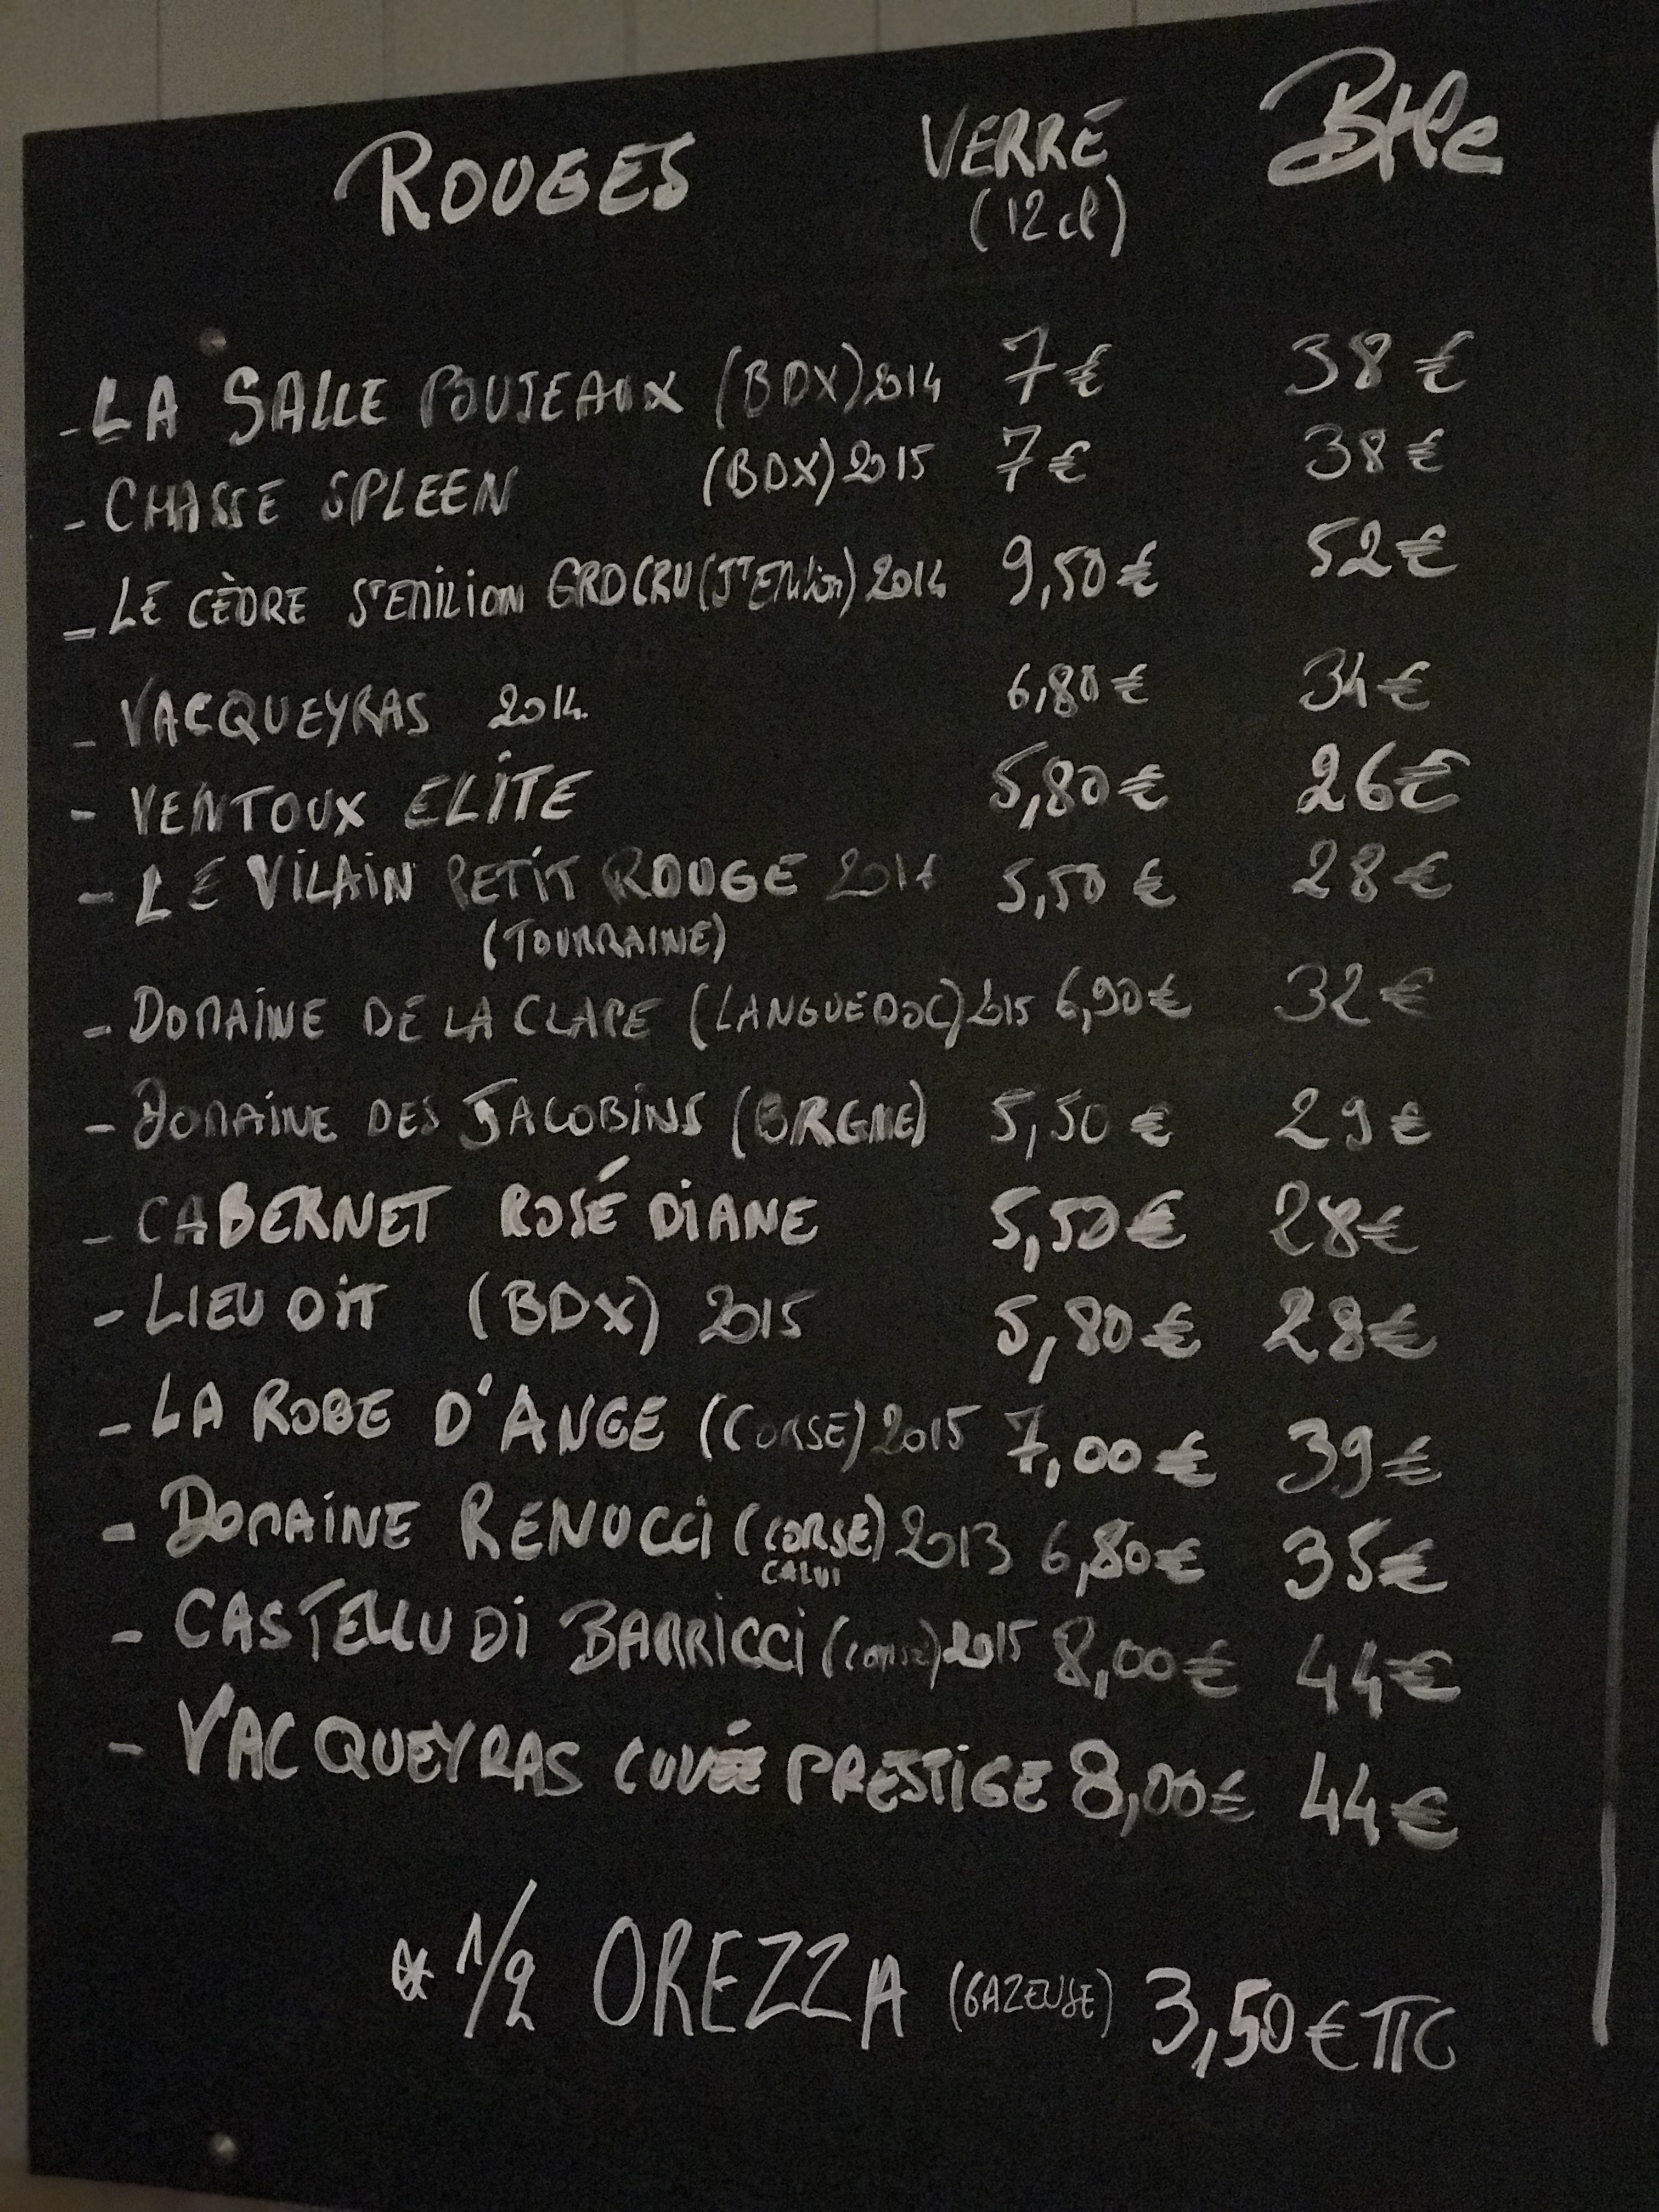 ROUGES VERRE Btlle
(12cl)
- LA SALLE POUJEAUX (BDX) 2014 7€ 38€
- CHASSE SPLEEN (BDX) 2015 7€ 38€
- LE CÈDRE ST EMILION GRD CRU (ST Emilion) 2014 9,50€ 52€
- VACQUEYRAS 2014 6,80€ 34€
- VENTOUX ELITE 5,80€ 26€
- LE VILAIN PETIT ROUGE 5,50€ 28€
(TOURRAINE)
- DOMAINE DE LA CLAPE (LANGUEDOC) 2015 6,90€ 32€
- DOMAINE DES JACOBINS (BRGNE) 5,50€ 29€
- CABERNET ROSÉ DIANE 5,50€ 28€
- LIEU DIT (BDX) 2015 5,80€ 28€
- LA ROBE D'ANGE (CORSE) 2015 7,00€ 39€
- DOMAINE RENUCCI (CORSE) 2013 6,80€ 35€
CALVI
- CASTELLU DI BARRICCI (CORSE) 2015 8,00€ 44€
- VACQUEYRAS CUVÉE PRESTIGE 8,00€ 44€
* 1/2 OREZZA (GAZEUSE) 3,50€ TTC